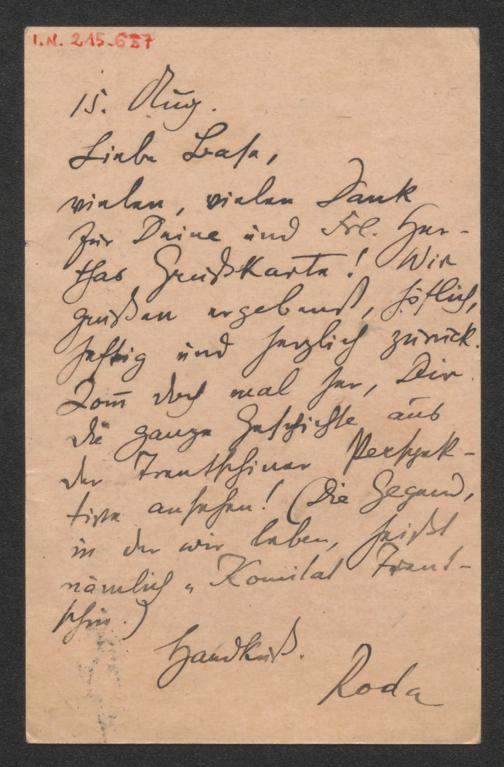 I.N. 215.687
15. Aug.
Liebe Base,
vielen, vielen Dank
für Deine und Frl. Her-
thas Grußkarte! Wir
grüßen ergebenst, höflich,
heftig und herzlich zurück.
Kom̅ doch mal her, Dir
die ganze Geschichte aus
der Trentschiner Perspek-
tive ansehen! (Die Gegend,
in der wir leben, heißt
nämlich „Komitat Trent-
schin.)
Handkuß.
Roda